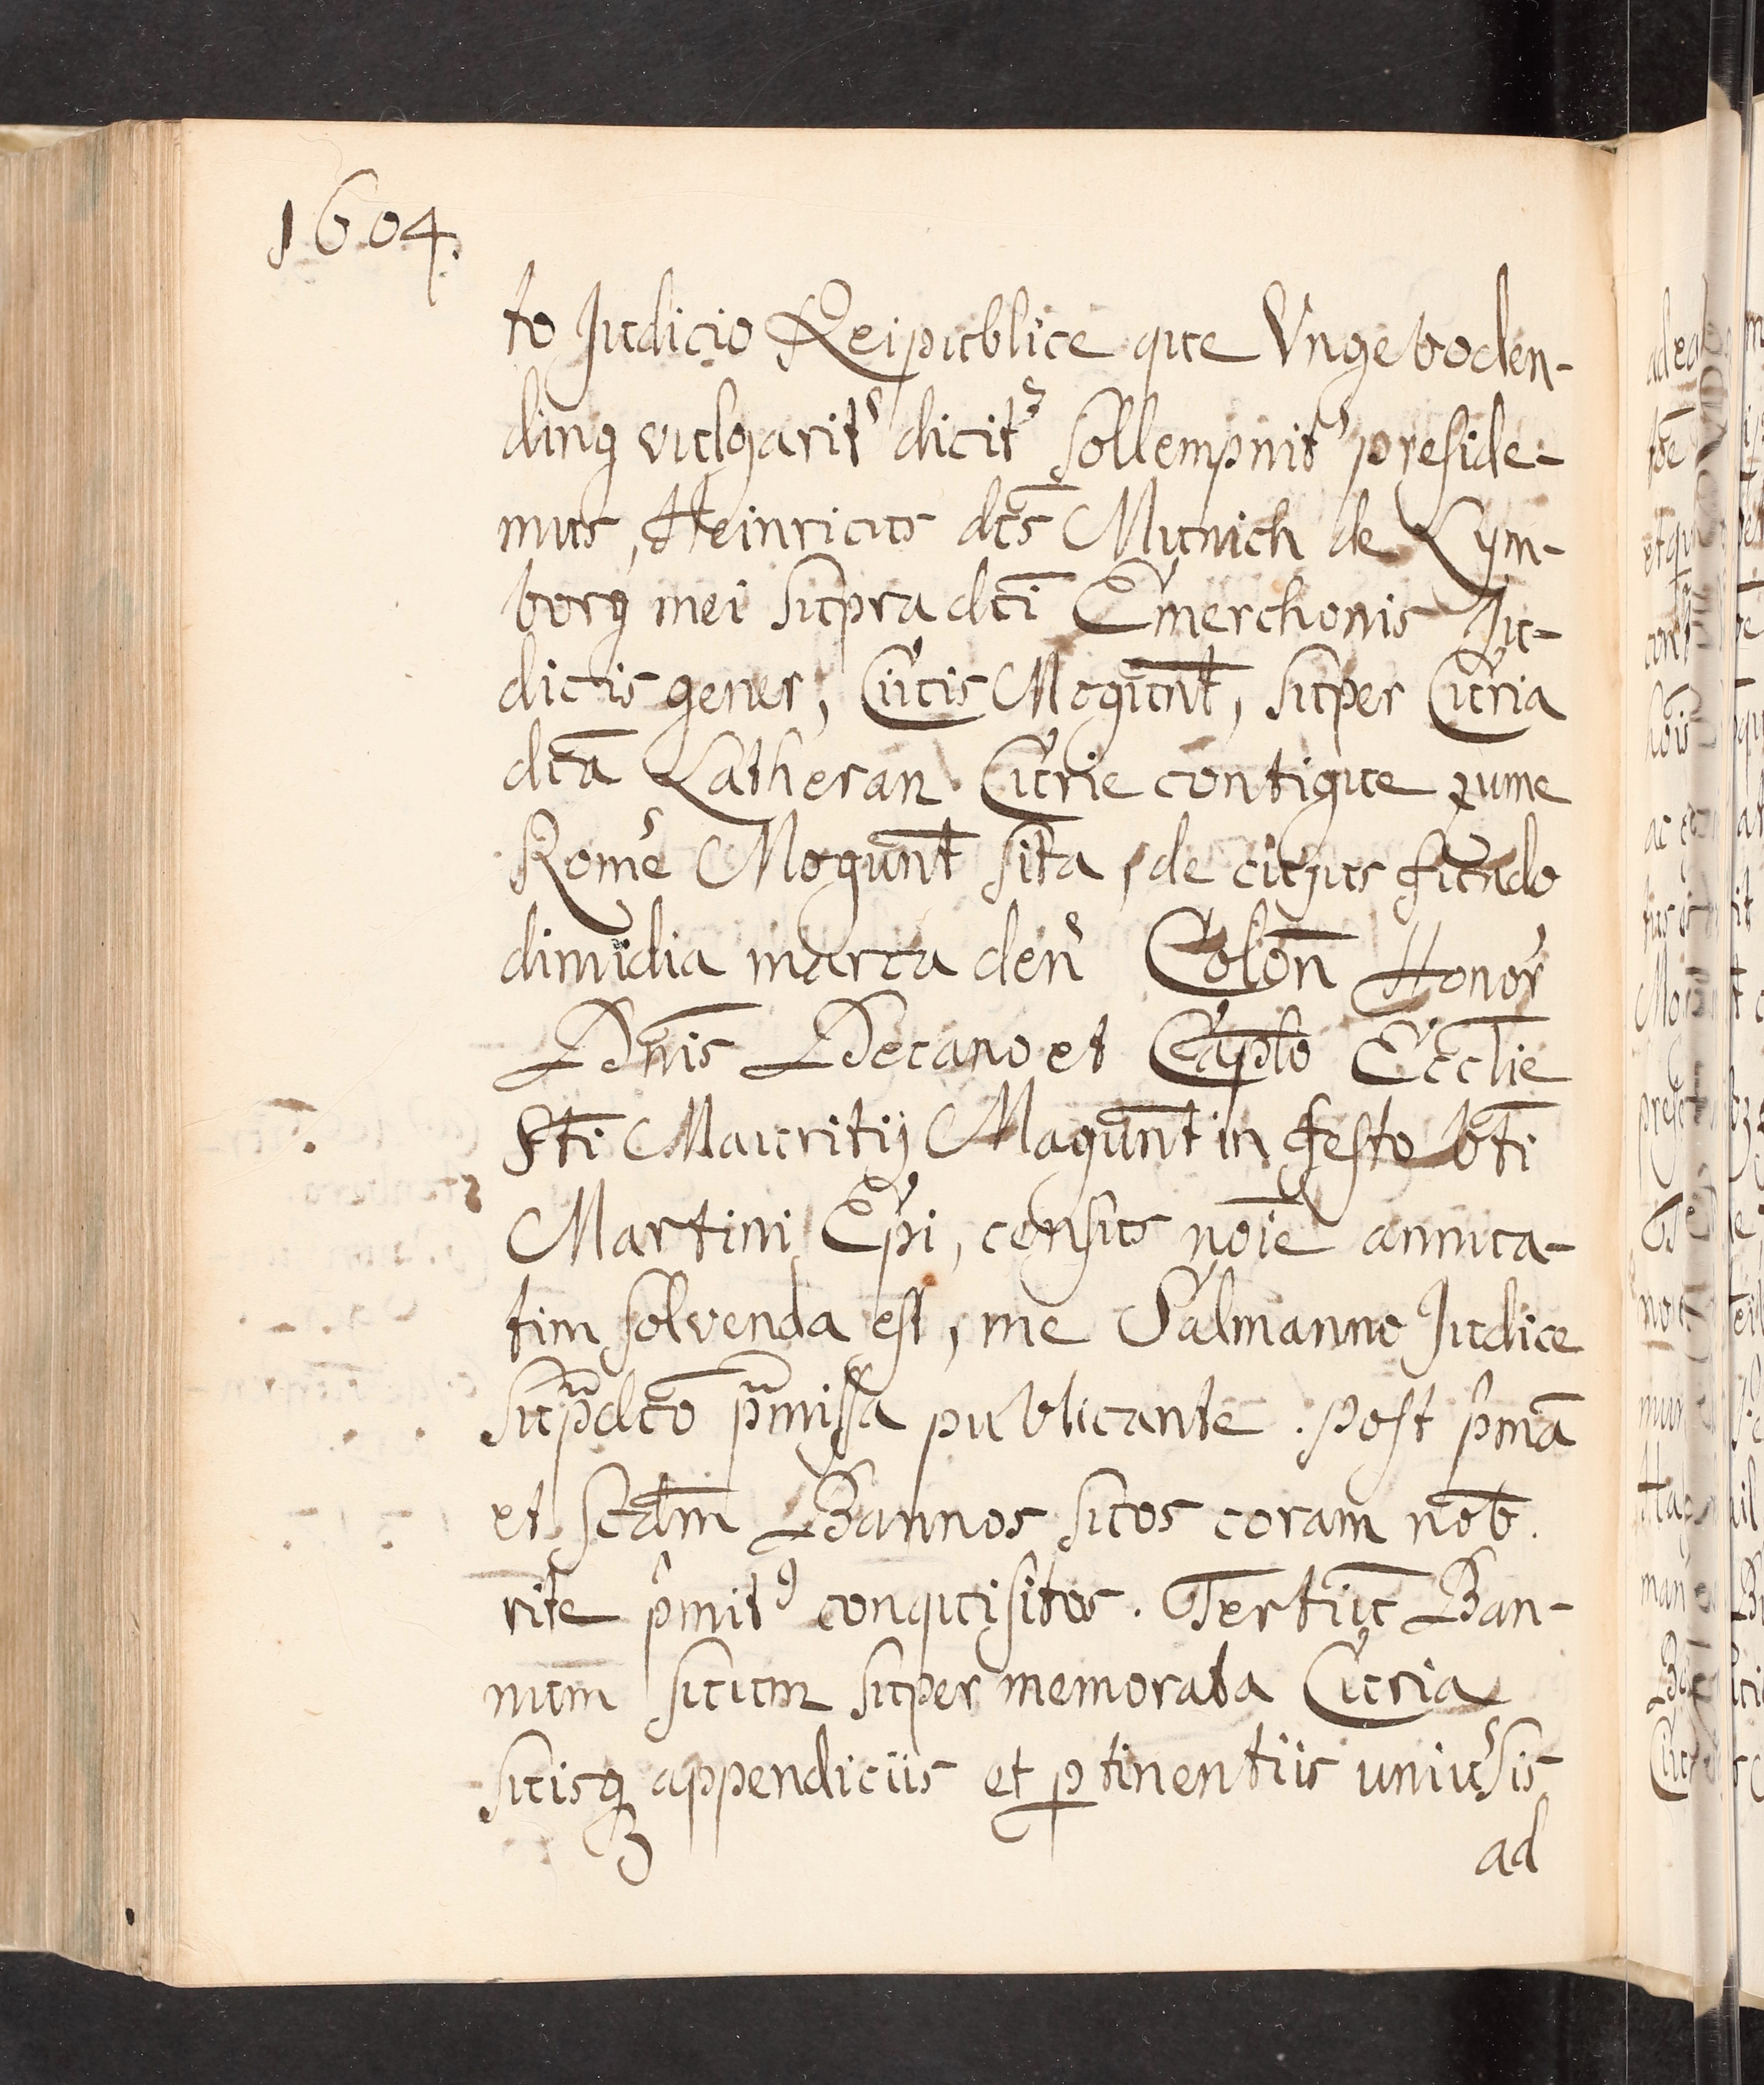 1604.
to Judicio Reipublice que Ungeboden-
ding vulgarit' dicit' sollempnit' preside-
mus, Heinricus dc̄s Munich de Lym-
borg mei supra dc̄i Emerchonis Ju-
dicis gener, Ciuis Mogun̄t, super Curia
dc̄a Latheran Curie contigue zume
Rome' Mogun̄t sita, de cujus fundo
dimidia marca den' Colon̄ Honor'
Dn̄is Decano et Cap̄lo Eccl̄ie
St̄i Mauritij Magun̄t in festo bt̄i
Martini Ep̄i, census no̅ie annua-
tim solvenda est, me Salmanno Judice
sup̄dc̄o p̄missa publicante. Post p'mā
et sc̄dm Bannos suos coram nob̄.
rite p'mit9 conquisitos. Tertiū Ban-
num suum super memorata Curia
suisq₃ appendiciis et ꝑtinentiis univ'sis
ad